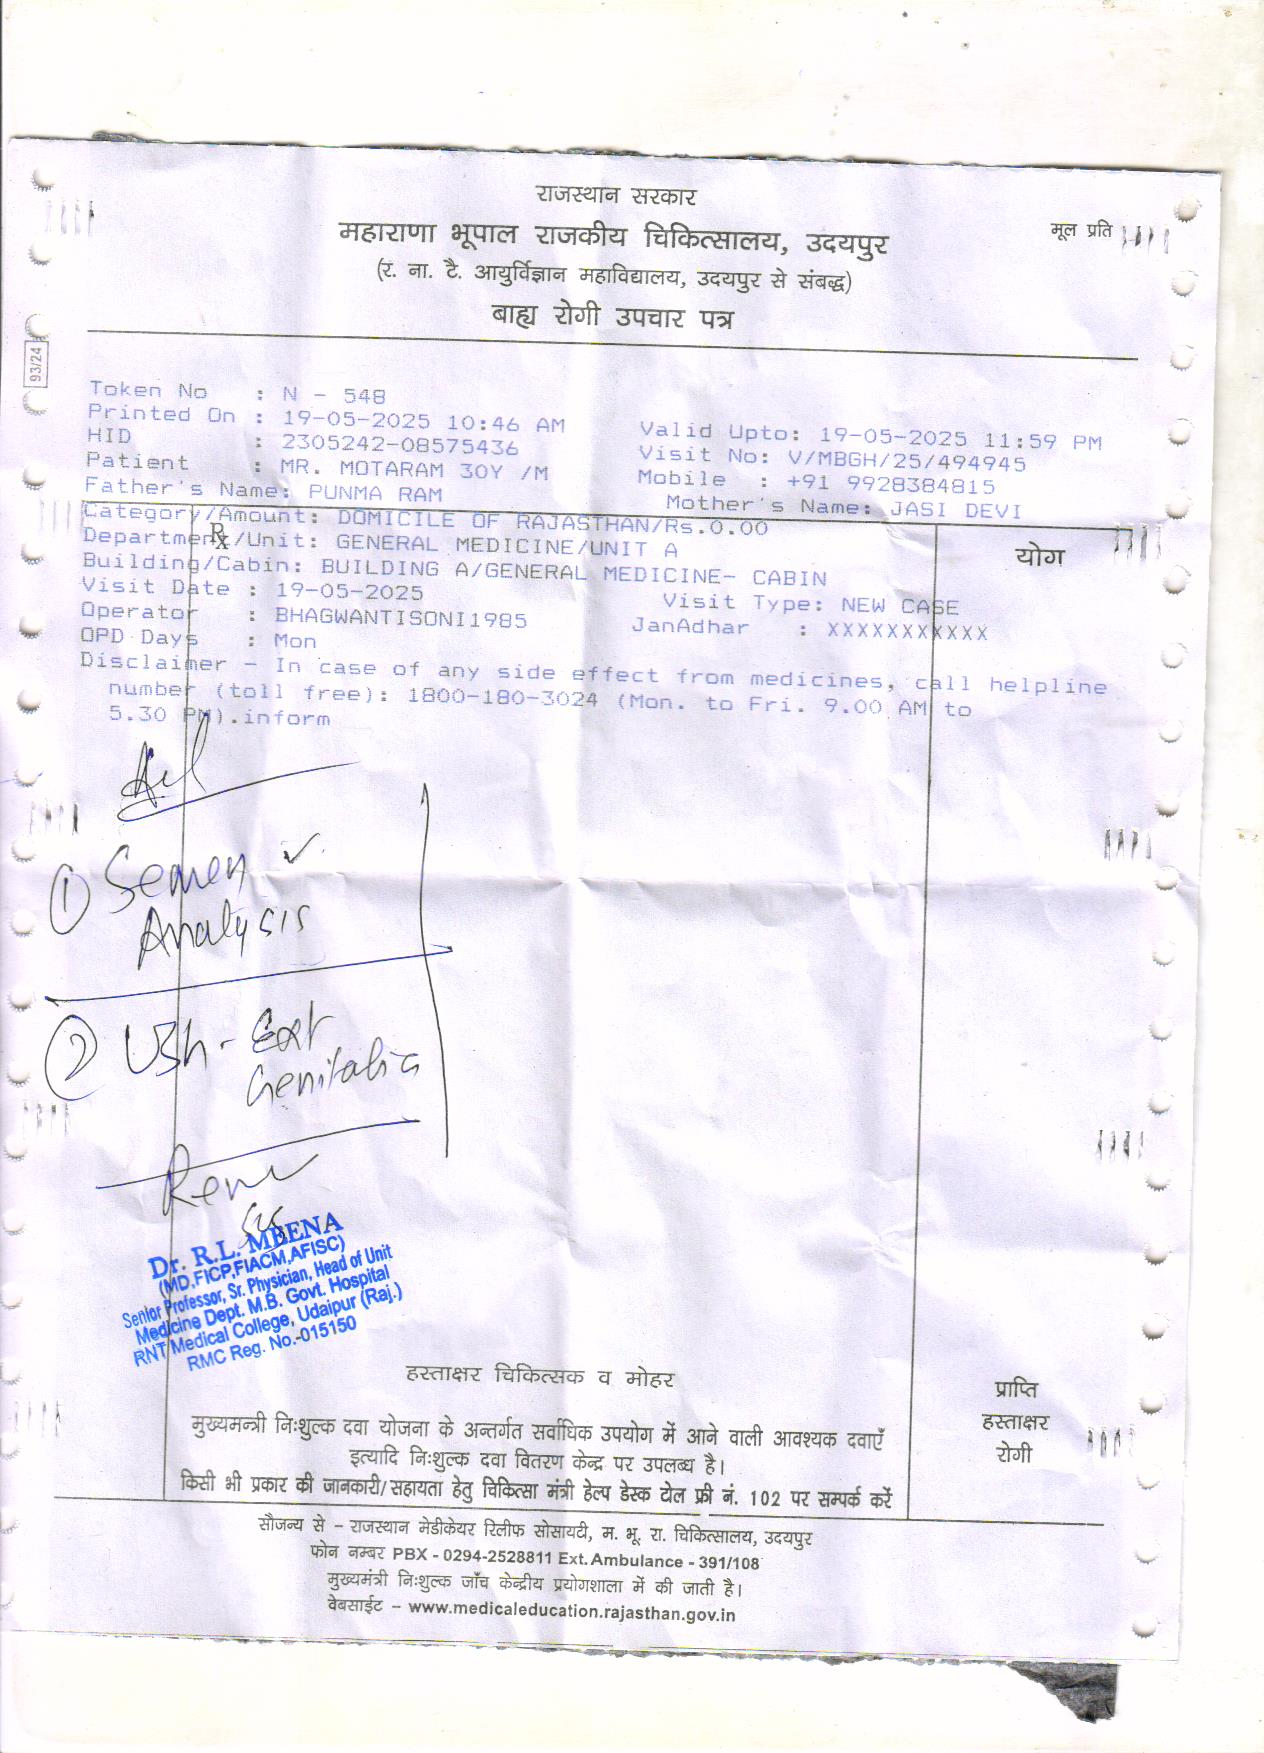 राजस्थान सरकार
महाराणा भूपाल राजकीय चिकित्सालय, उदयपुर
मूल प्रति
(र. ना. टै. आयुर्विज्ञान महाविद्यालय, उदयपुर से संबद्ध)
बाह्य रोगी उपचार पत्र
93/24
Token No : N - 548
Printed On : 19-05-2025 10:46 AM Valid Upto: 19-05-2025 11:59 PM
HID : 2305242-08575436 Visit No: V/MBGH/25/494945
Patient : MR. MOTARAM 30Y /M Mobile : +91 9928384815
Father's Name: PUNMA RAM Mother's Name: JASI DEVI
Category/Amount: DOMICILE OF RAJASTHAN/Rs.0.00
योग
Department/Unit: GENERAL MEDICINE/UNIT A
Building/Cabin: BUILDING A/GENERAL MEDICINE- CABIN
Visit Date : 19-05-2025 Visit Type: NEW CASE
Operator : BHAGWANTISONI1985 JanAdhar : XXXXXXXXXXX
OPD Days : Mon
Disclaimer - In case of any side effect from medicines, call helpline
number (toll free): 1800-180-3024 (Mon. to Fri. 9.00 AM to
5.30 PM).inform
① Semen ✓
Analysis
② USh - Ext
Genitalia
Dr. R.L. MEENA
(MD,FICP,FIACM,AFISC)
Senior Professor, Sr. Physician, Head of Unit
Medicine Dept. M.B. Govt. Hospital
RNT Medical College, Udaipur (Raj.)
RMC Reg. No.-015150
हस्ताक्षर चिकित्सक व मोहर
प्राप्ति
हस्ताक्षर
रोगी
मुख्यमन्त्री निःशुल्क दवा योजना के अन्तर्गत सर्वाधिक उपयोग में आने वाली आवश्यक दवाएँ
इत्यादि निःशुल्क दवा वितरण केन्द्र पर उपलब्ध है।
किसी भी प्रकार की जानकारी/सहायता हेतु चिकित्सा मंत्री हेल्प डेस्क टोल फ्री नं. 102 पर सम्पर्क करें
सौजन्य से – राजस्थान मेडीकेयर रिलीफ सोसायटी, म. भू. रा. चिकित्सालय, उदयपुर
फोन नम्बर PBX - 0294-2528811 Ext. Ambulance - 391/108
मुख्यमंत्री निःशुल्क जाँच केन्द्रीय प्रयोगशाला में की जाती है।
वेबसाईट – www.medicaleducation.rajasthan.gov.in